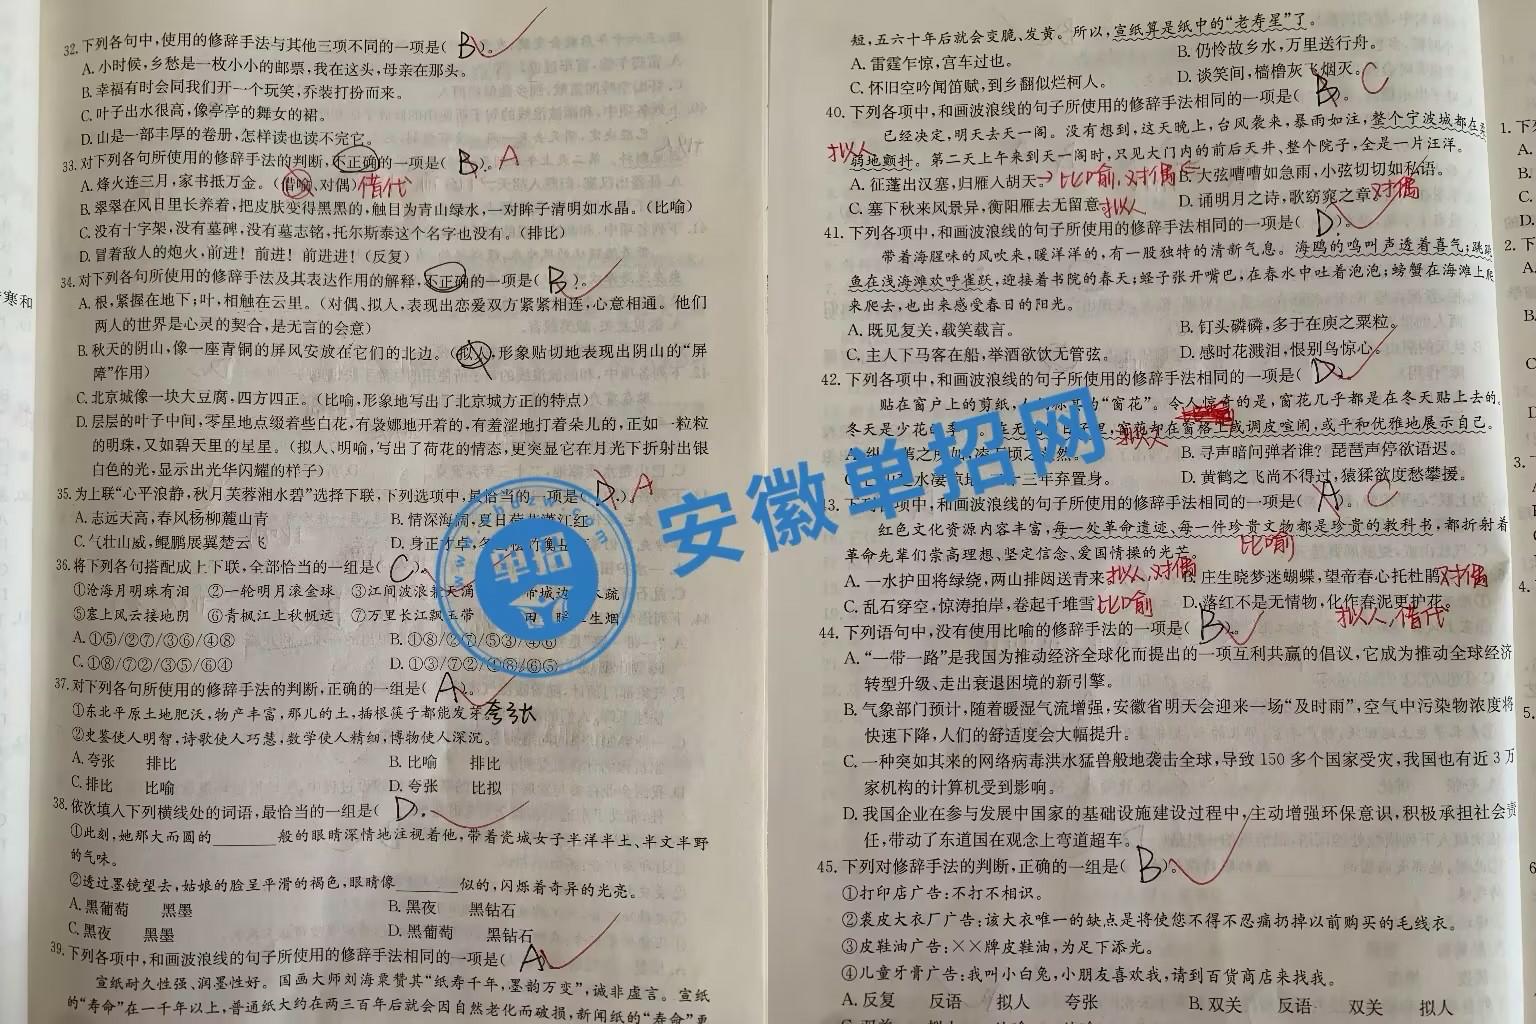 32. 下列各句中,使用的修辞手法与其他三项不同的一项是( B )。
A. 小时候,乡愁是一枚小小的邮票,我在这头,母亲在那头。
B. 幸福有时会同我们开一个玩笑,乔装打扮而来。
C. 叶子出水很高,像亭亭的舞女的裙。
D. 山是一部丰厚的卷册,怎样读也读不完它。
33. 对下列各句所使用的修辞手法的判断,不正确的一项是( B )。A
A. 烽火连三月,家书抵万金。(借喻、对偶)借代
B. 翠翠在风日里长养着,把皮肤变得黑黑的,触目为青山绿水,一对眸子清明如水晶。(比喻)
C. 没有十字架,没有墓碑,没有墓志铭,托尔斯泰这个名字也没有。(排比)
D. 冒着敌人的炮火,前进!前进!前进进!(反复)
34. 对下列各句所使用的修辞手法及其表达作用的解释,不正确的一项是( B )。
A. 根,紧握在地下;叶,相触在云里。(对偶、拟人,表现出恋爱双方紧紧相连,心意相通。他们
两人的世界是心灵的契合,是无言的会意)
B. 秋天的阴山,像一座青铜的屏风安放在它们的北边。(拟人,形象贴切地表现出阴山的“屏
障”作用)
C. 北京城像一块大豆腐,四方四正。(比喻,形象地写出了北京城方正的特点)
D. 层层的叶子中间,零星地点缀着些白花,有袅娜地开着的,有羞涩地打着朵儿的,正如一粒粒
的明珠,又如碧天里的星星。(拟人、明喻,写出了荷花的情态,更突显它在月光下折射出银
白色的光,显示出光华闪耀的样子)
35. 为上联“心平浪静,秋月芙蓉湘水碧”选择下联,下列选项中,最恰当的一项是( D )。A
A. 志远天高,春风杨柳麓山青
B. 情深海阔,夏日荷
C. 气壮山威,鲲鹏展翼楚云飞
D. 身正才卓,冬
36. 将下列各句搭配成上下联,全部恰当的一组是( C )
①沧海月明珠有泪 ②一轮明月滚金球 ③江间波浪兼天涌 带城边 木疏
⑤塞上风云接地阴 ⑥青枫江上秋帆远 ⑦万里长江飘玉带 暖 生烟
A. ①⑤/②⑦/③⑥/④⑧ B. ①⑧/②⑦/⑤③/④⑥
C. ①⑧/⑦②/③⑤/⑥④ D. ①③/⑦②/④⑧/⑥⑤
37. 对下列各句所使用的修辞手法的判断,正确的一组是( A )。
①东北平原土地肥沃,物产丰富,那儿的土,插根筷子都能发芽。夸张
②史鉴使人明智,诗歌使人巧慧,数学使人精细,博物使人深沉。
A. 夸张 排比 B. 比喻 排比
C. 排比 比喻 D. 夸张 比拟
38. 依次填入下列横线处的词语,最恰当的一组是( D )。
①此刻,她那大而圆的______般的眼睛深情地注视着他,带着瓷城女子半洋半土、半文半野
的气味。
②透过墨镜望去,姑娘的脸呈平滑的褐色,眼睛像______似的,闪烁着奇异的光亮。
A. 黑葡萄 黑墨 B. 黑夜 黑钻石
C. 黑夜 黑墨 D. 黑葡萄 黑钻石
39. 下列各项中,和画波浪线的句子所使用的修辞手法相同的一项是( A )。
宣纸耐久性强、润墨性好。国画大师刘海粟赞其“纸寿千年,墨韵万变”,诚非虚言。宣纸
的“寿命”在一千年以上,普通纸大约在两三百年后就会因自然老化而破损,新闻纸的“寿命”更
短,五六十年后就会变脆、发黄。所以,宣纸算是纸中的“老寿星”了。
A. 雷霆乍惊,宫车过也。 B. 仍怜故乡水,万里送行舟。
C. 怀旧空吟闻笛赋,到乡翻似烂柯人。 D. 谈笑间,樯橹灰飞烟灭。
40. 下列各项中,和画波浪线的句子所使用的修辞手法相同的一项是( B )。C
已经决定,明天去天一阁。没有想到,这天晚上,台风袭来,暴雨如注,整个宁波城都在
拟人 弱地颤抖。第二天上午来到天一阁时,只见大门内的前后天井、整个院子,全是一片汪洋。
A. 征蓬出汉塞,归雁入胡天。→比喻,对偶← B. 大弦嘈嘈如急雨,小弦切切如私语。
C. 塞下秋来风景异,衡阳雁去无留意 拟人 D. 诵明月之诗,歌窈窕之章 对偶
41. 下列各项中,和画波浪线的句子所使用的修辞手法相同的一项是( D )。
带着海腥味的风吹来,暖洋洋的,有一股独特的清新气息。海鸥的鸣叫声透着喜气;跳跳
鱼在浅海滩欢呼雀跃,迎接着书院的春天;蛏子张开嘴巴,在春水中吐着泡泡;螃蟹在海滩上爬
来爬去,也出来感受春日的阳光。
A. 既见复关,载笑载言。 B. 钉头磷磷,多于在庾之粟粒。
C. 主人下马客在船,举酒欲饮无管弦。 D. 感时花溅泪,恨别鸟惊心。
42. 下列各项中,和画波浪线的句子所使用的修辞手法相同的一项是( D )。
贴在窗户上的剪纸,人们称其为“窗花”。令人惊奇的是,窗花几乎都是在冬天贴上去的。
冬天是少花的季 在无 日子里,窗花却在窗格上或调皮喧闹,或平和优雅地展示自己。
拟人
A. 纵一苇之所如,凌万顷之茫然。 B. 寻声暗问弹者谁?琵琶声停欲语迟。
水凄凉地 二十三年弃置身。 D. 黄鹤之飞尚不得过,猿猱欲度愁攀援。
43. 下列各项中,和画波浪线的句子所使用的修辞手法相同的一项是( A )。C
红色文化资源内容丰富,每一处革命遗迹、每一件珍贵文物都是珍贵的教科书,都折射着
革命先辈们崇高理想、坚定信念、爱国情操的光芒。 比喻
A. 一水护田将绿绕,两山排闼送青来 拟人,对偶 B. 庄生晓梦迷蝴蝶,望帝春心托杜鹃 对偶
C. 乱石穿空,惊涛拍岸,卷起千堆雪 比喻 D. 落红不是无情物,化作春泥更护花。
拟人,借代
44. 下列语句中,没有使用比喻的修辞手法的一项是( B )。
A. “一带一路”是我国为推动经济全球化而提出的一项互利共赢的倡议,它成为推动全球经济
转型升级、走出衰退困境的新引擎。
B. 气象部门预计,随着暖湿气流增强,安徽省明天会迎来一场“及时雨”,空气中污染物浓度将
快速下降,人们的舒适度会大幅提升。
C. 一种突如其来的网络病毒洪水猛兽般地袭击全球,导致150多个国家受灾,我国也有近3万
家机构的计算机受到影响。
D. 我国企业在参与发展中国家的基础设施建设过程中,主动增强环保意识,积极承担社会责
任,带动了东道国在观念上弯道超车。
45. 下列对修辞手法的判断,正确的一组是( B )。
①打印店广告:不打不相识。
②裘皮大衣厂广告:该大衣唯一的缺点是将使您不得不忍痛扔掉以前购买的毛线衣。
③皮鞋油广告:××牌皮鞋油,为足下添光。
④儿童牙膏广告:我叫小白兔,小朋友喜欢我,请到百货商店来找我。
A. 反复 反语 拟人 夸张 B. 双关 反语 双关 拟人
安徽单招网
单招
寒和